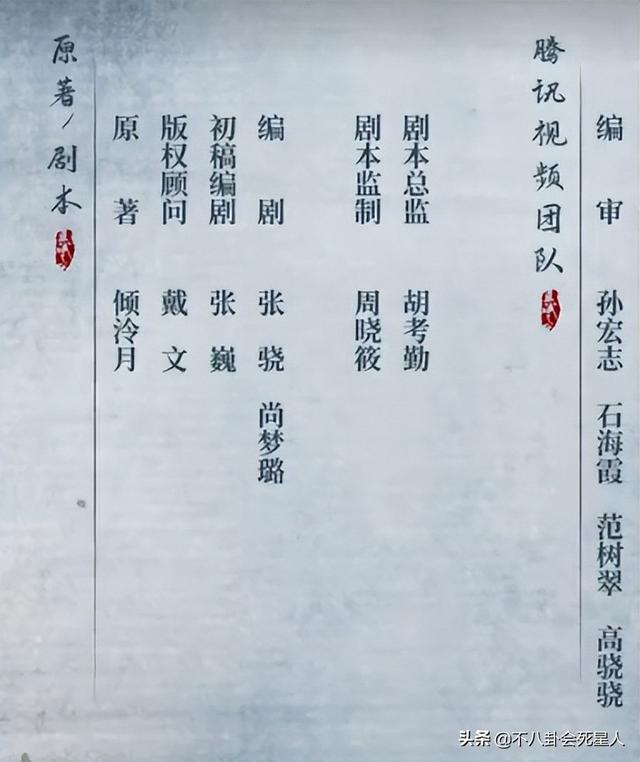 腾讯视频团队
编审 孙宏志 石海霞 范树翠 高骁骁
原著/剧本
原著 倾泠月
版权顾问 戴文
初稿编剧 张巍
编剧 张骁 尚梦璐
剧本监制 周晓筱
剧本总监 胡考勤
头条 @不八卦会死星人